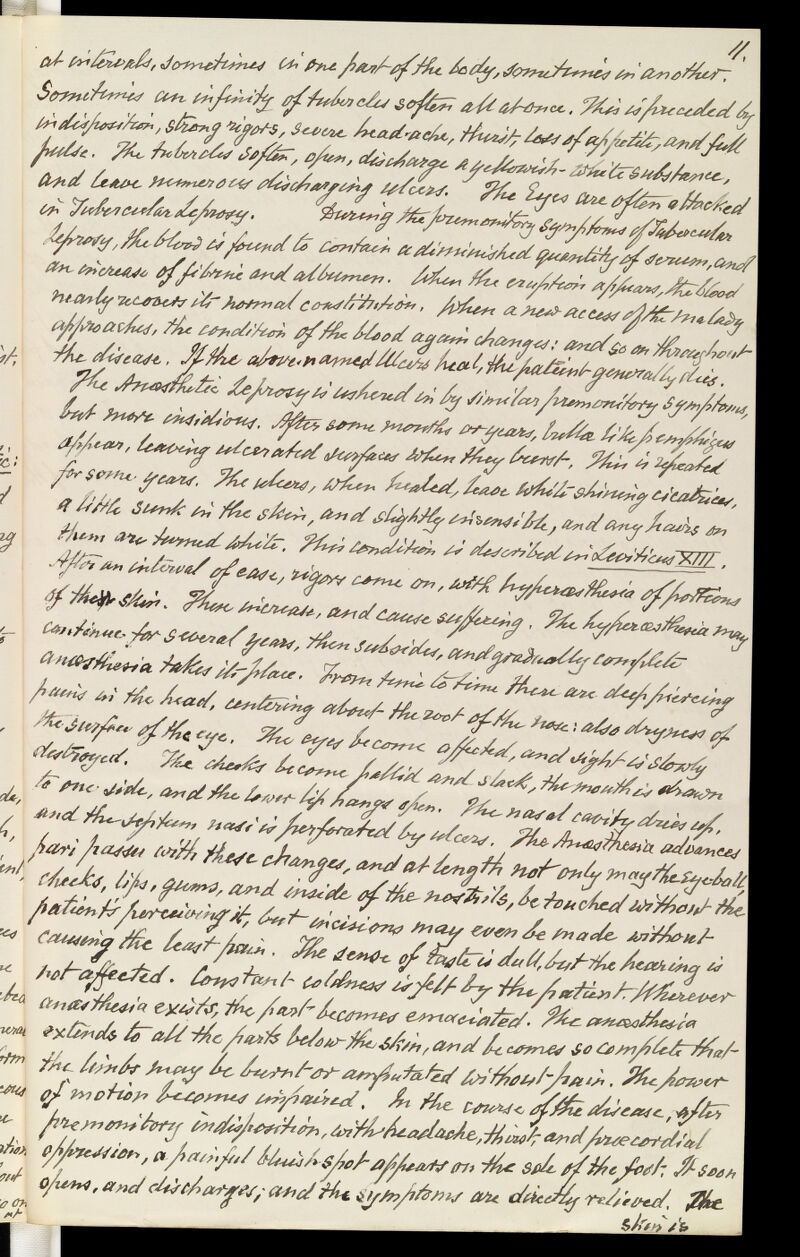 11.
at intervals, sometimes in one part of the body, sometimes in another.
Sometimes an infinity of tubercles soften all at once. This is preceded by
indisposition, strong rigors, severe head-ache, thirst, loss of appetite, and full
pulse. The tubercles soften, open, discharge a yellowish-white substance,
and leave numerous discharging ulcers. The Eyes are often attacked
in Tubercular Leprosy. During the premonitory symptoms of Tubercular
Leprosy, the blood is found to contain a diminished quantity of serum, and
an increase of fibrine and albumen. When the eruption appears, the blood
nearly recovers its normal constitution. When a new access of the malady
approaches, the condition of the blood again changes: and so on throughout
the disease. If the above-named Ulcers heal, the patient generally dies.
The Anæsthetic Leprosy is ushered in by similar premonitory symptoms,
but more insidious. After some months or years, bullæ like pemphigus
appear, leaving ulcerated surfaces when they burst. This is repeated
for some years. The ulcers, when healed, leave white shining cicatrices,
a little sunk in the skin, and slightly insensible, and any hairs on
them are turned white. This condition is described in Leviticus XIII.
After an interval of ease, rigors come on, with hyperæsthesia of portions
of the skin. These increase, and cause suffering. The hyperæsthesia may
continue for several years, then subsides, and gradually complete
anæsthesia takes its place. From time to time there are deep piercing
pains in the head, centering about the root of the nose: also dryness of
the surface of the eye. The eyes become affected, and sight is slowly
destroyed. The cheeks become pallid and slack, the mouth is drawn
to one side, and the lower lip hangs open. The nasal cavity dries up,
and the septum nasi is perforated by ulcers. The Anæsthesia advances
pari passu with these changes, and at length not only may the eyeball,
cheeks, lips, gums, and inside of the nostrils, be touched without the
patients perceiving it, but incisions may even be made without
causing the least pain. The sense of taste is dull, but the hearing is
not affected. Constant coldness is felt by the patient. Wherever
anæsthesia exists, the part becomes emaciated. The anæsthesia
extends to all the parts below the skin, and becomes so complete that
the limbs may be burnt or amputated without pain. The power
of motion becomes impaired. In the course of the disease, after
premonitory indisposition, with headache, thirst, and præcordial
oppression, a painful bluish spot appears on the sole of the foot. It soon
opens, and discharges; and the symptoms are directly relieved. The
skin is